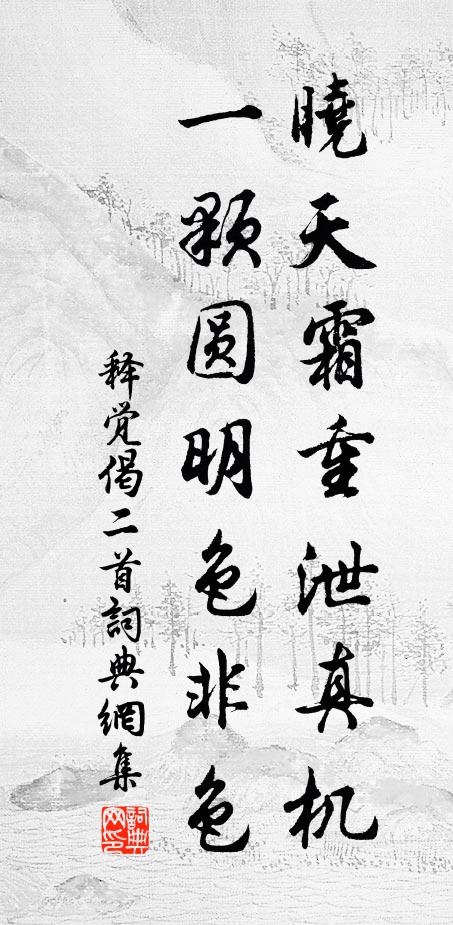 曉天霜重泄真机
一颗圆明色非色
释觉偈二首詞典網集
詞典网印